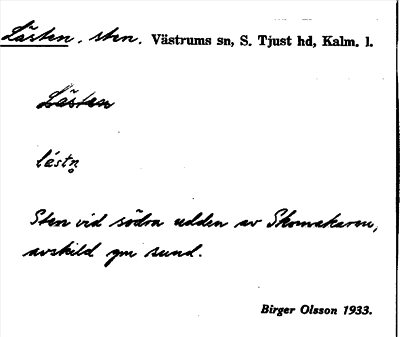 Låsten, sten. Västrums sn, S. Tjust hd, Kalm. l.
Låsten
lástn̥
Sten vid södra udden av Skomakaren,
avskild gm sund.
Birger Olsson 1933.